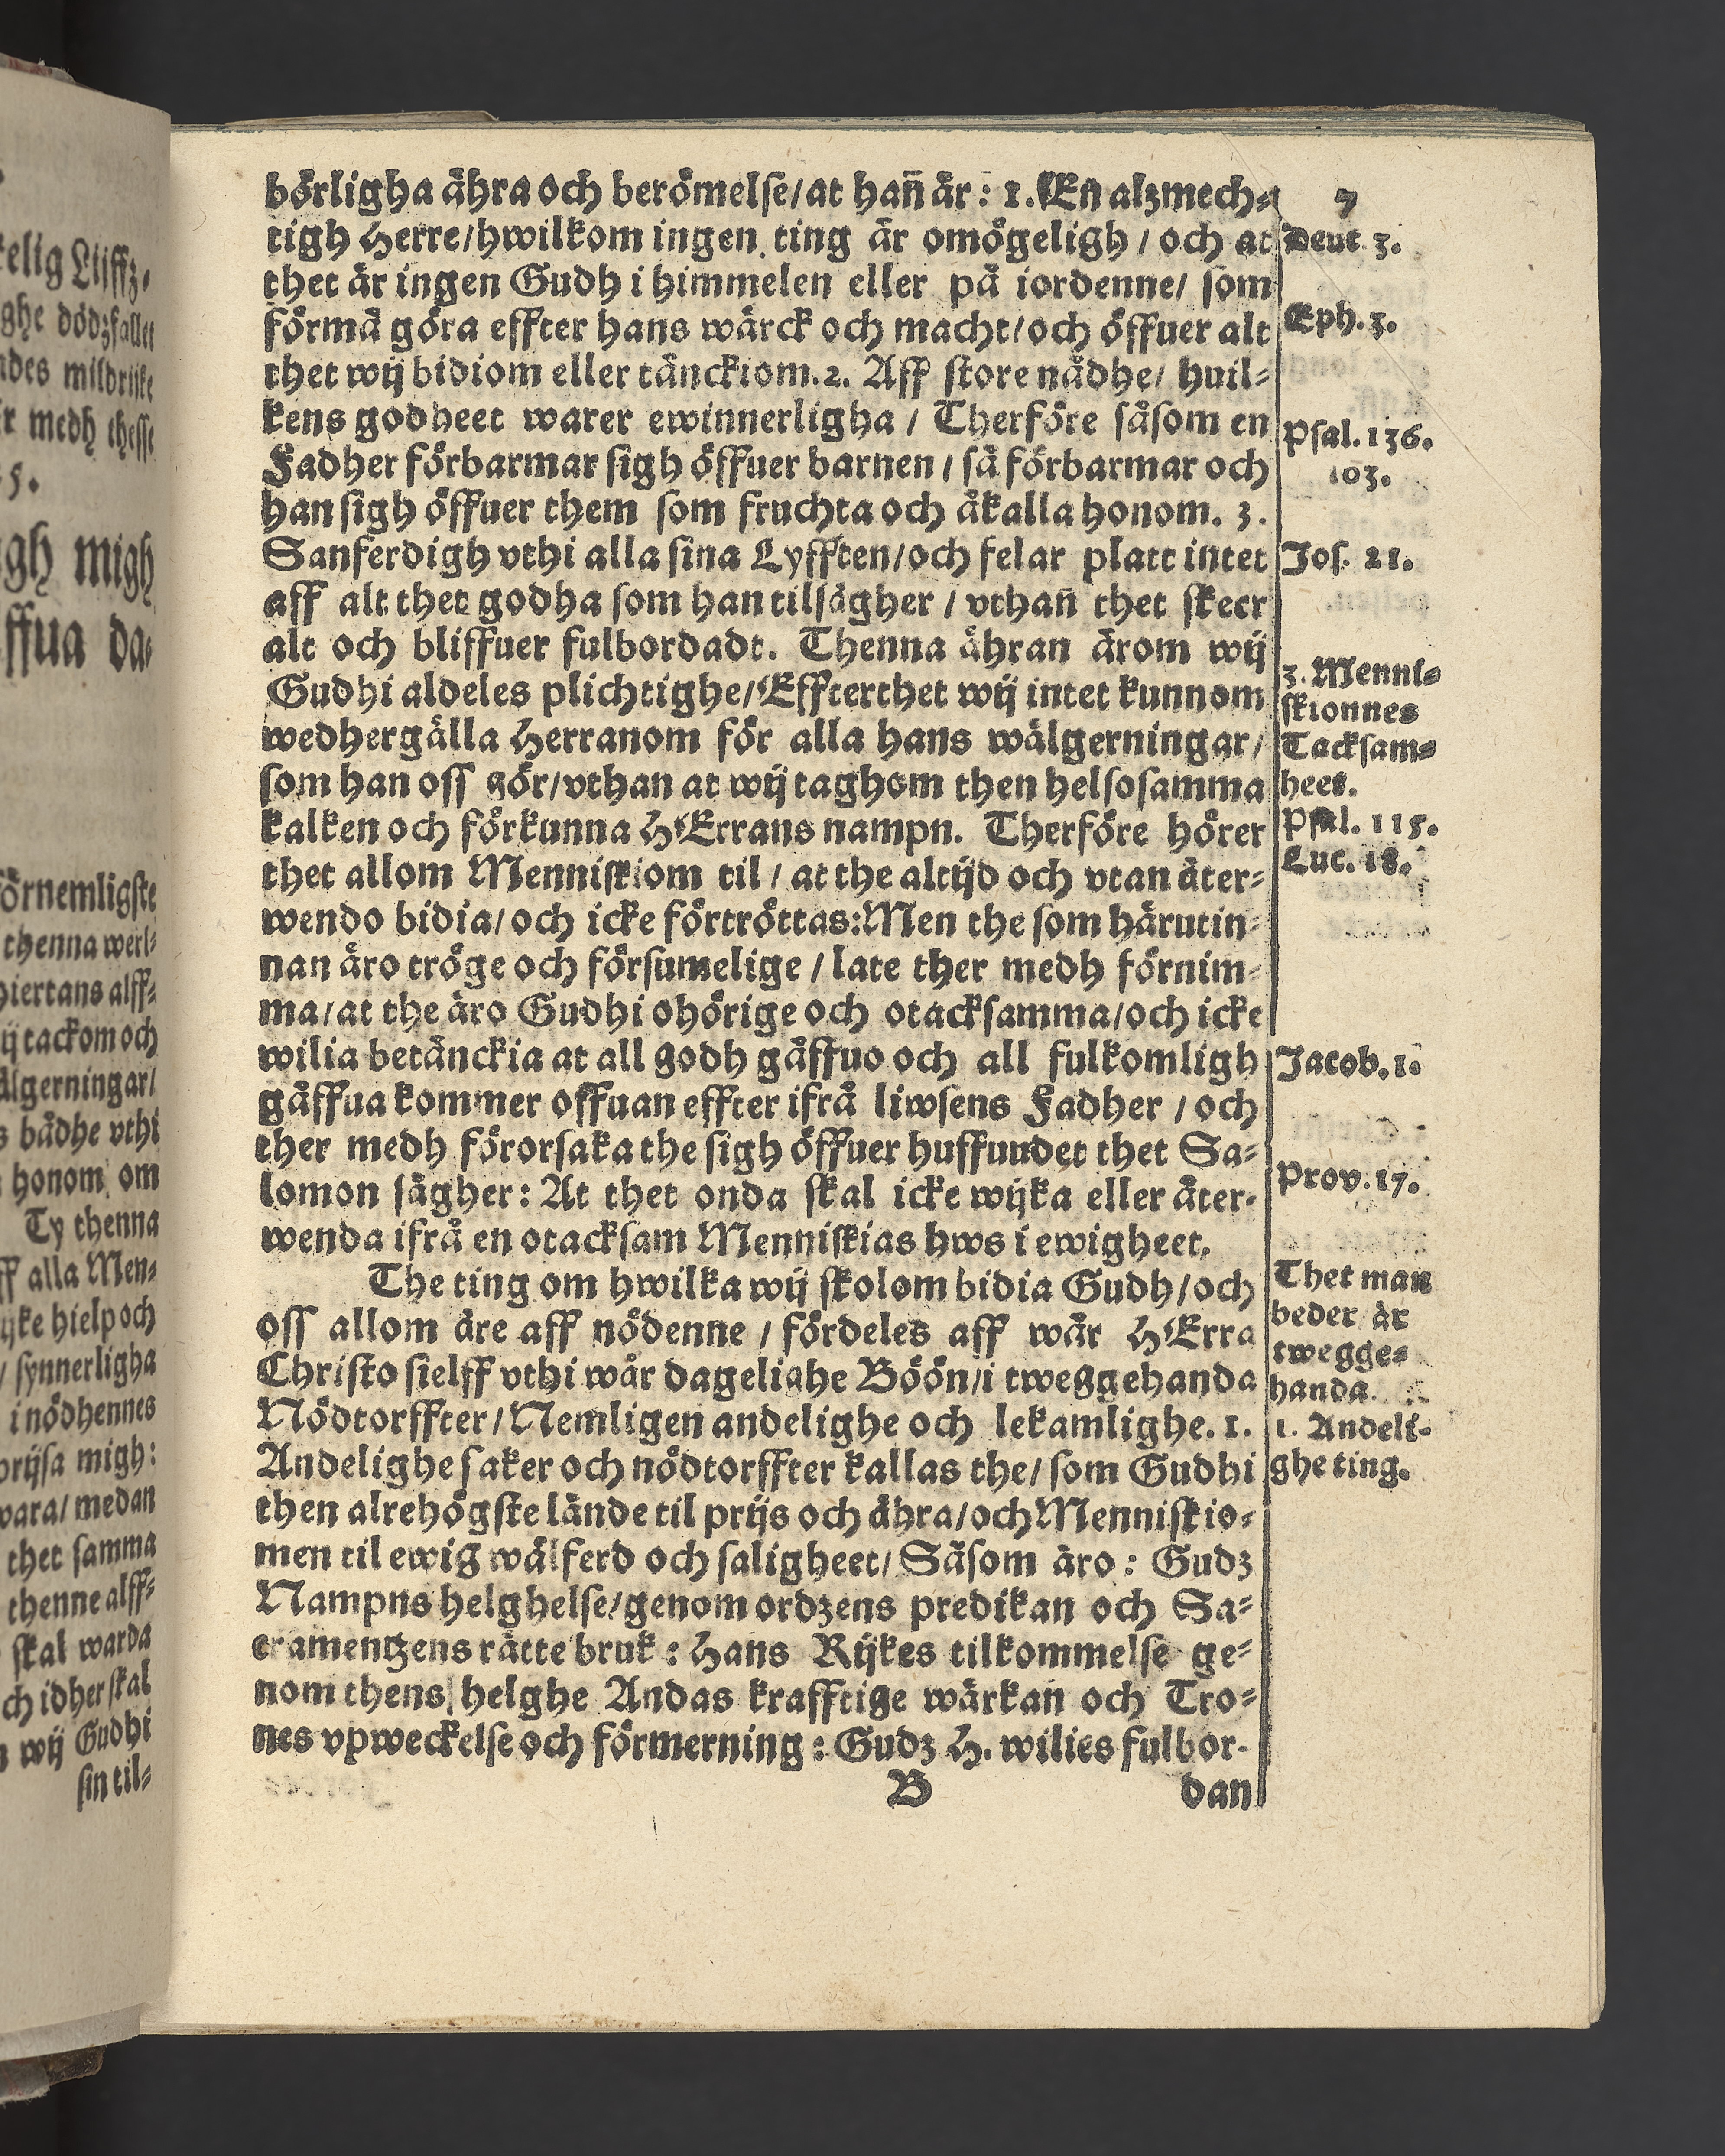 börligha ähra och berömelse/at hañ är: 1. En alzmech-
tigh Herre/hwilkom ingen ting är omögeligh / och at
thet är ingen Gudh i himmelen eller på iordenne/ som
förmå göra effter hans wärck och macht/och öffuer alt
thet wij bidiom eller tänckiom.2. Aff store nådhe/ huil-
kens godheet warer ewinnerligha / Therföre såsom en
Fadher förbarmar sigh öffuer barnen / så förbarmar och
han sigh öffuer them som fruchta och åkalla honom. 3.
Sanferdigh vthi alla sina Lyfften/och felar platt intet
aff alt thet godha som han tilsägher / vthañ thet skeer
alt och bliffuer fulbordadt. Thenna ähran ärom wij
Gudhi aldeles plichtighe/Effterthet wij intet kunnom
wedhergälla Herranom för alla hans wälgerningar/
som han oss gör/vthan at wij taghom then helsosamma
kalken och förkunna HErrans nampn. Therföre hörer
thet allom Menniskiom til / at the altijd och vtan åter-
wendo bidia/och icke förtröttas:Men the som härutin-
nan äro tröge och försumelige / late ther medh förnim-
ma/at the äro Gudhi ohörige och otacksamma/och icke
wilia betänckia at all godh gåffuo och all fulkomligh
gåffua kommer offuan effter ifrå liwsens Fadher / och
ther medh förorsaka the sigh öffuer huffuudet thet Sa-
lomon sägher: At thet onda skal icke wijka eller åter-
wenda ifrå en otacksam Menniskias hws i ewigheet.
The ting om hwilka wij skolom bidia Gudh/och
oss allom äre aff nödenne / fördeles aff wår HErra
Christo sielff vthi wår dagelighe Böön/i tweggehanda
Nödtorffter/Nemligen andelighe och lekamlighe. 1.
Andelighe saker och nödtorffter kallas the/ som Gudhi
then alrehögste lände til prijs och ähra/och Menniskio-
men til ewig wälferd och saligheet/ Såsom äro: Gudz
Nampns helghelse/genom ordzens predikan och Sa-
cramentzens rätte bruk: Hans Rijkes tilkommelse ge-
nom thens helghe Andas krafftige wärkan och Tro-
nes vpweckelse och förmerning: Gudz H. wilies fulbor-
B dan
7
Deut 3.
Eph. 3.
Psal. 136.
103.
Jos. 21.
3. Menni-
skionnes
Tacksam-
heet.
Psal. 115.
Luc. 18.
Jacob. 1.
Prov. 17.
Thet man
beder är
twegge-
handa.
1. Andeli-
ghe ting.
ghe dödzsallet
mildrijke
r medh thesse
5.
gh migh
ffua da-
örnemligste
thenna werl-
hiertans alff-
ij tackom och
älgerningar/
bådhe vthi
honom om
Ty thenna
alla Men-
hielp och
/ synnerligha
i nödhennes
prijsa migh:
wara/ medan
thet samma
thenne alff-
skal warda
och idher skal
wij Gudhi
sin til-